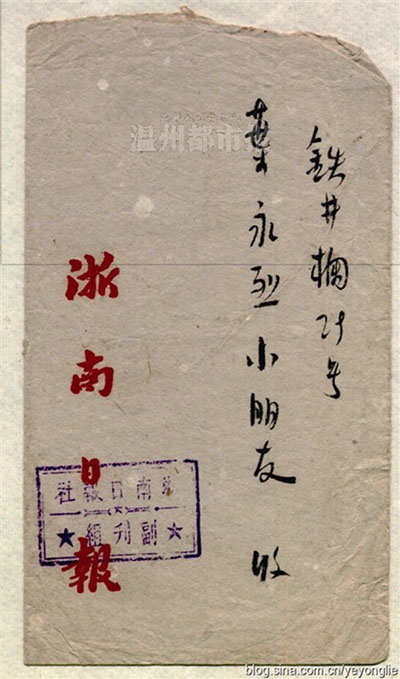 鉄井欄号
葉永烈小朋友 收
浙南日報
浙南日報社
★副刊組★
温州都市
blog.sina.com.cn/yeyonglie